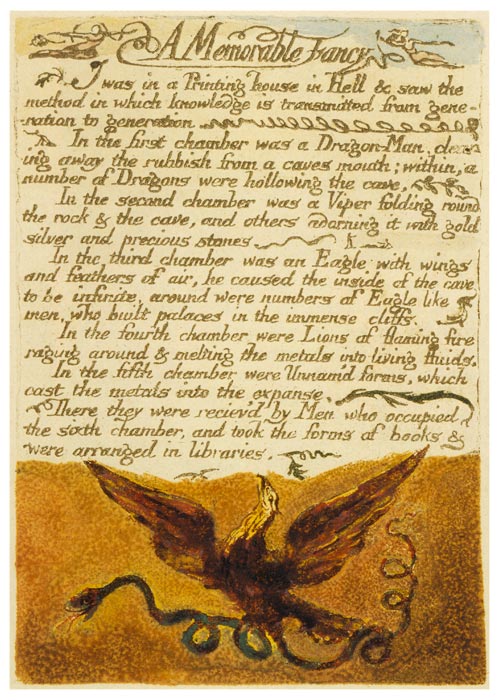 A Memorable Fancy
I was in a Printing house in Hell & saw the
method in which knowledge is transmitted from gene-
ration to generation
In the first chamber was a Dragon-Man, clear-
ing away the rubbish from a caves mouth; within, a
number of Dragons were hollowing the cave,
In the second chamber was a Viper folding round
the rock & the cave, and others adorning it with gold
silver and precious stones.
In the third chamber was an Eagle with wings
and feathers of air, he caused the inside of the cave
to be infinite, around were numbers of Eagle like
men, who built palaces in the immense cliffs.
In the fourth chamber were Lions of flaming fire
raging around & melting the metals into living fluids.
In the fifth chamber were Unnam'd forms, which
cast the metals into the expanse.
There they were reciev'd by Men who occupied
the sixth chamber, and took the forms of books &
were arranged in libraries.